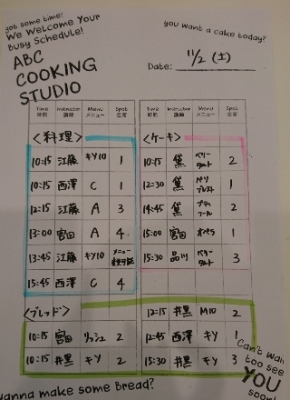 got some time?
We Welcome Your
Busy Schedule!
you want a cake today?
ABC
COOKING
STUDIO
Date: 11/2 (土)
Time Instructor Menu Spot
時間 講師 メニュー 空席
Time Instructor Menu Spot
時間 講師 メニュー 空席
<料理>
10:15 江藤 キソ10 1
10:15 西澤 C 1
12:15 江藤 A 3
13:00 宮田 A 4
13:45 江藤 キソ10 メニュー 1
15:45 西澤 C 4
<ケーキ>
10:15 ベリータルト 2
12:30 1
14:45 2
15:00 宮田 1
15:30 品川 ベリータルト 3
<ブレッド>
10:15 宮田 リュシュ 2
10:15 井黒 キソ 2
12:15 井黒 M10 2
12:45 西澤 キソ 1
15:30 井黒 キソ 3
Can't wait
too see
YOU
soon!
wanna make some Bread?